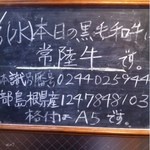 (水)本日の黒毛和牛は
常陸牛です。
本識別番号0244025944
都島根県産1247848103
格付はA5です。